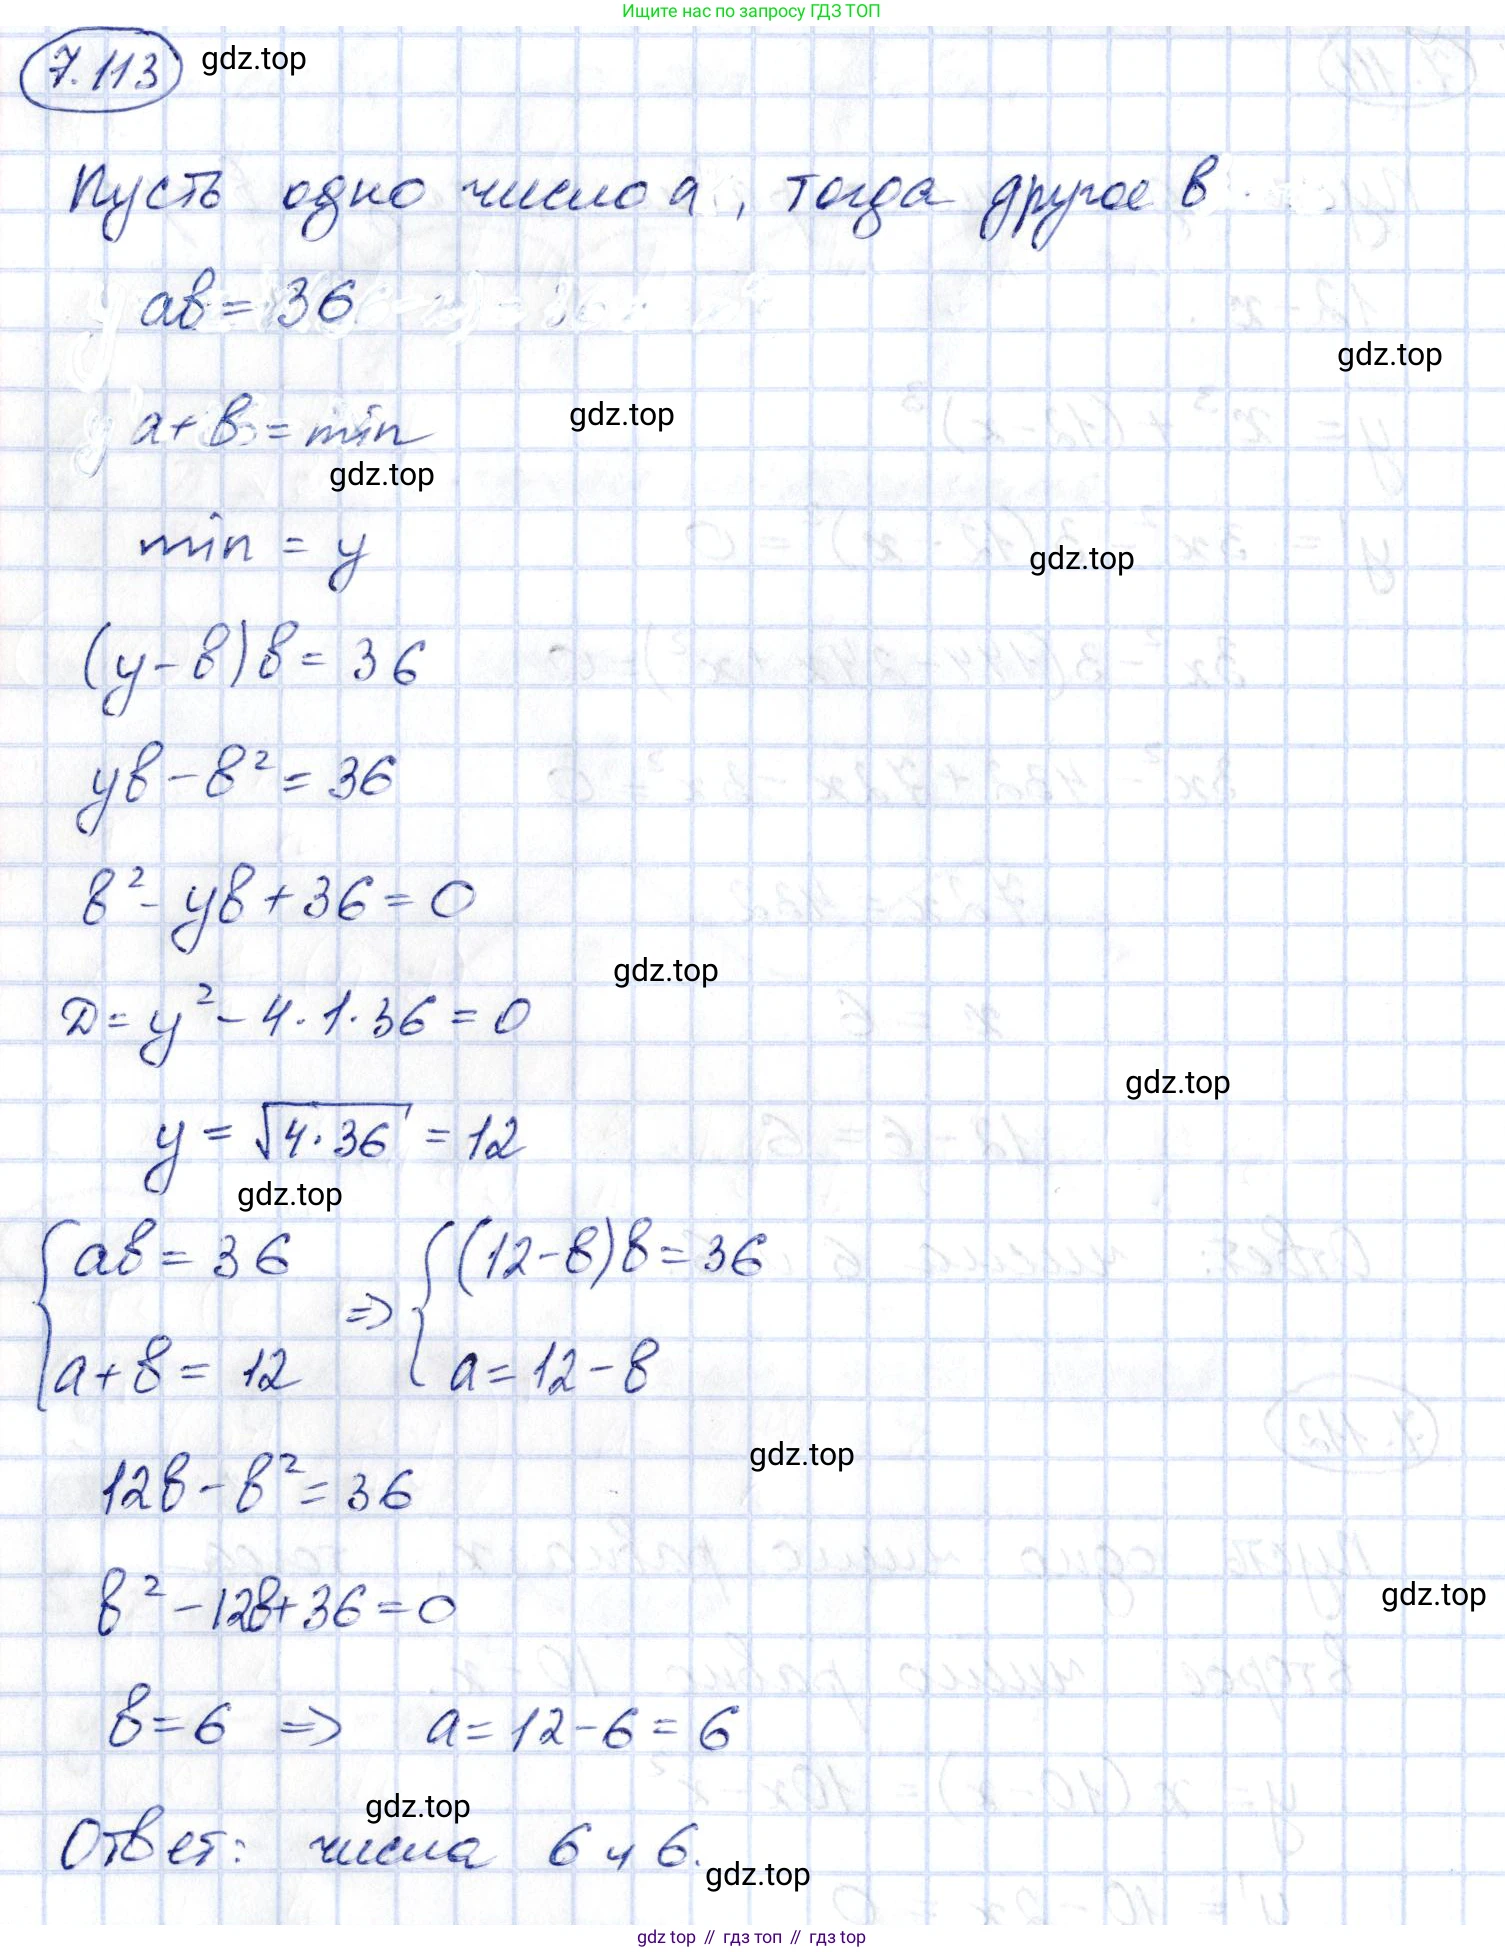 Ищите нас по запросу ГДЗ ТОП
7.113 gdz.top
Пусть одно число a, тогда другое в.
aв = 36
gdz.top
a + в = min
gdz.top
gdz.top
min = y
gdz.top
(y - в)в = 36
yв - в² = 36
в² - yв + 36 = 0
gdz.top
D = y² - 4 · 1 · 36 = 0
gdz.top
y = √4 · 36 = 12
gdz.top
{ aв = 36 ⇒ { (12 - в)в = 36
a + в = 12 a = 12 - в
gdz.top
12в - в² = 36
в² - 12в + 36 = 0
gdz.top
в = 6 ⇒ a = 12 - 6 = 6
gdz.top
Ответ: числа 6 и 6.
gdz.top
gdz top // гдз топ // гдз top